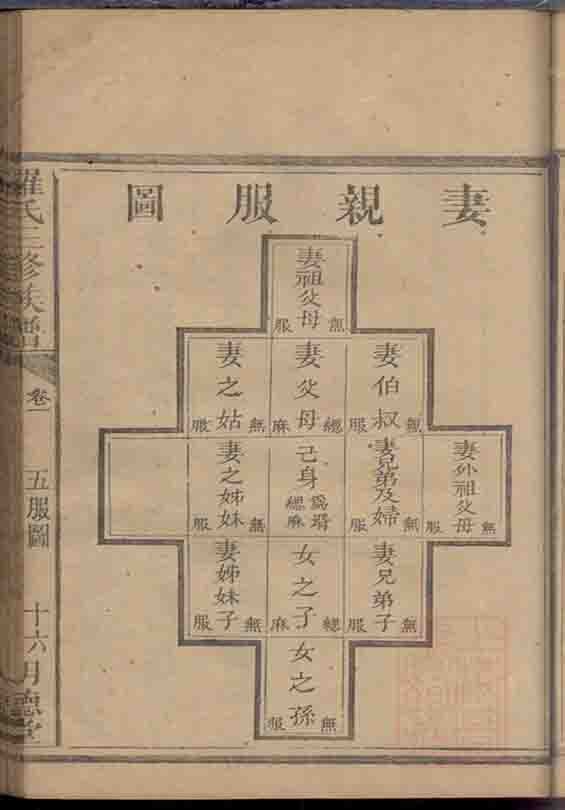 妻親服圖
妻祖父母
無服
妻伯叔
無服
妻父母
緦麻
妻之姑
無服
妻外祖父母
無服
妻兄弟及婦
無服
己身
為壻緦麻
妻之姊妹
無服
妻兄弟子
無服
女之子
緦麻
妻姊妹子
無服
女之孫
無服
羅氏三修族譜
卷一
五服圖
十六
明德堂